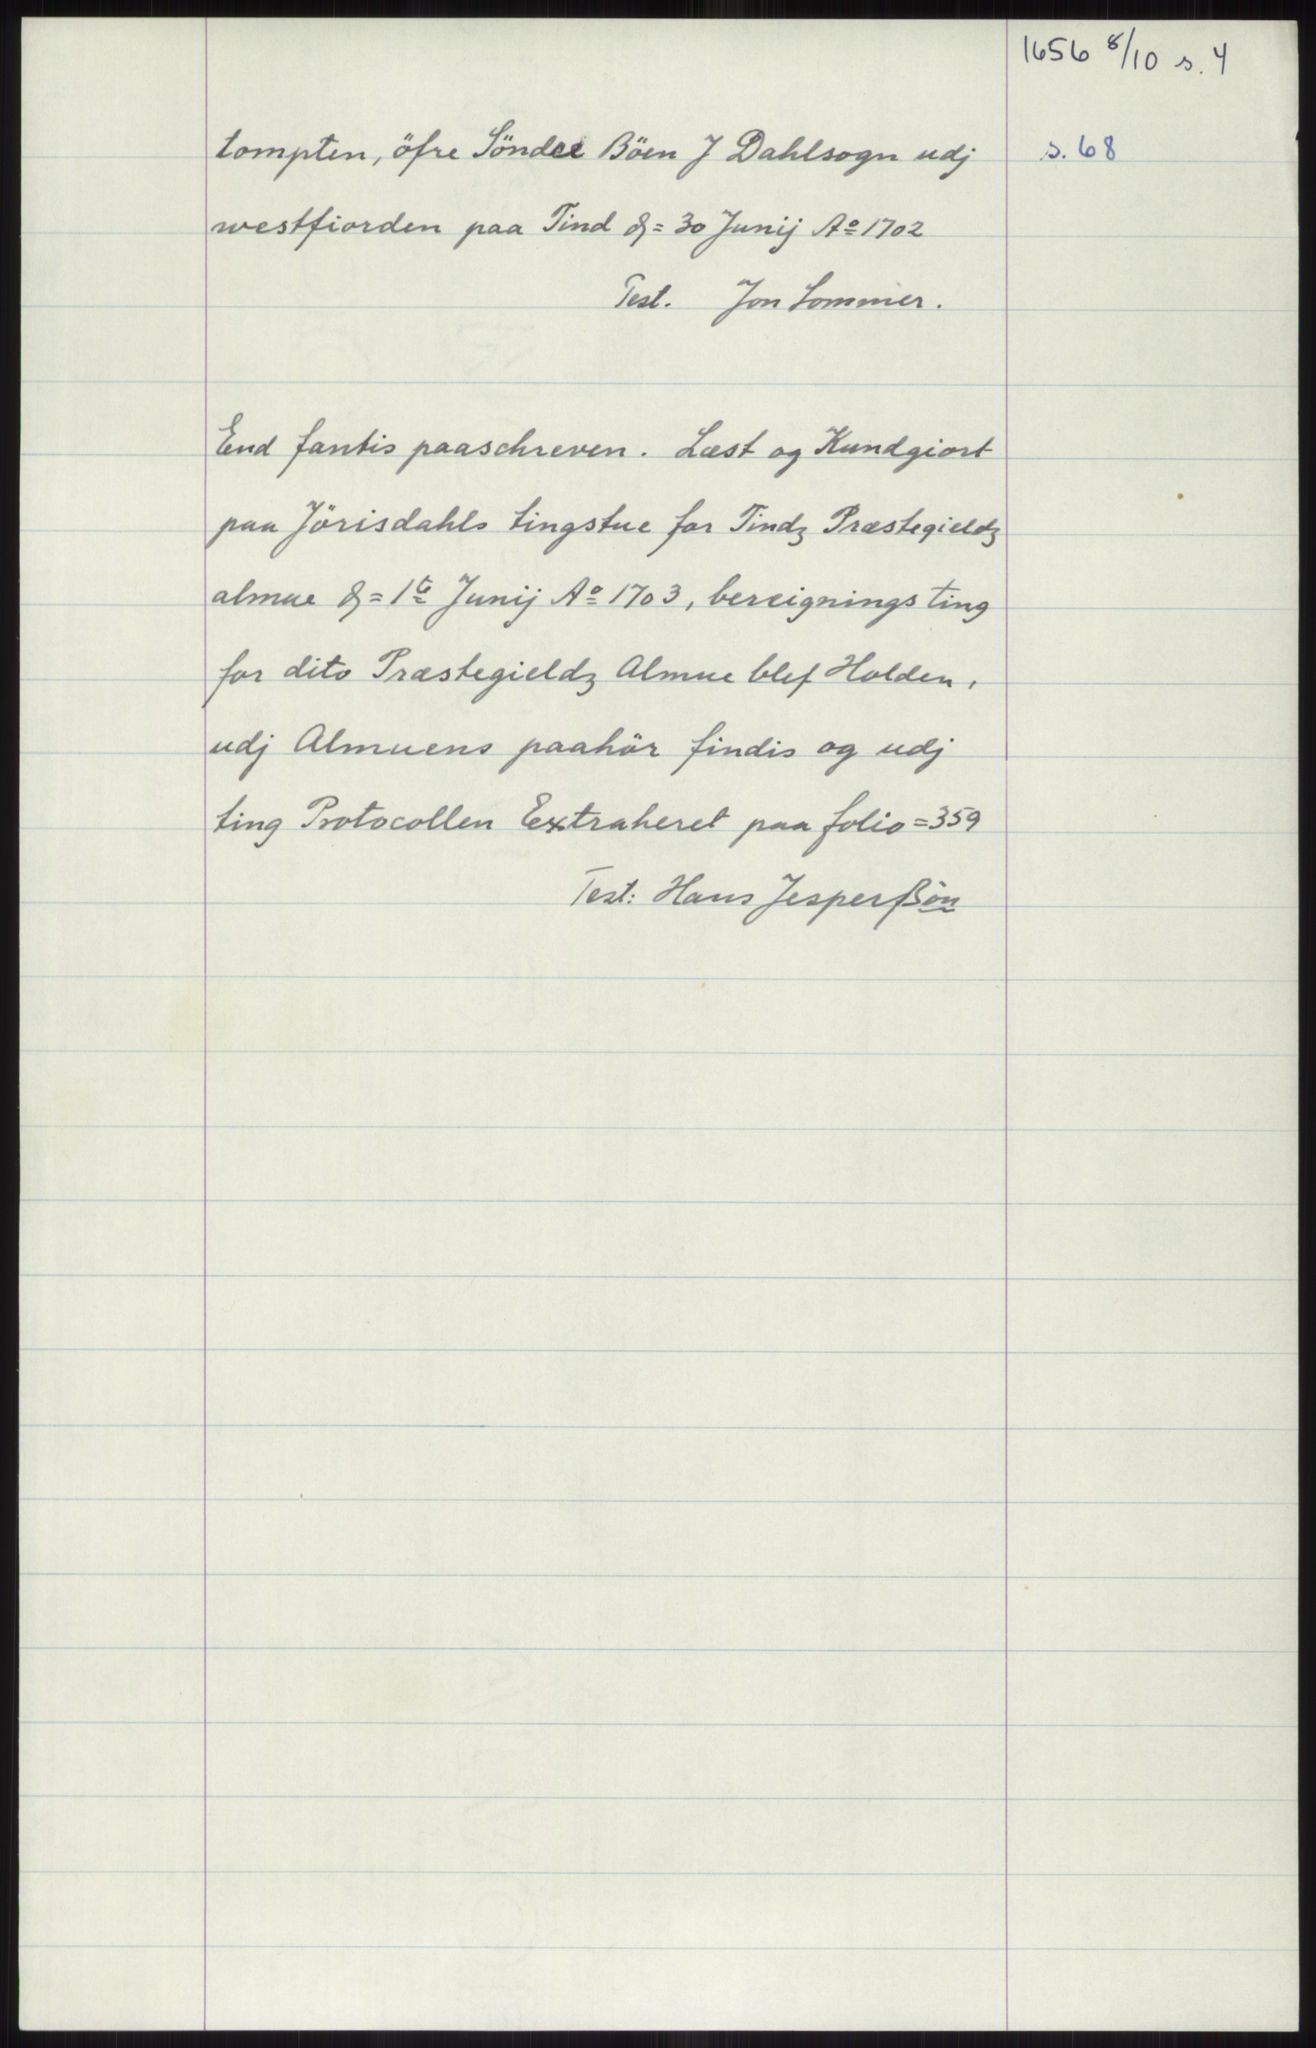 1656 8/10 s. 4
tompten, öfre Sönder Böen J Dahlsogn udj
s. 68
westfiorden paa Tind d= 30 Junij Ao 1702
Test. Jon Sommer.
End fantis paaschreven. Læst og Kundgiort
paa Jörisdahls tingstue for Tindz Præstegieldz
almue d= 1te Junij Ao 1703, bereignings ting
for dito Præstegieldz Almue blef Holden,
udj Almuens paahör findis og udj
ting Protocollen Extraheret paa folio=359
Test: Hans Jesperßön